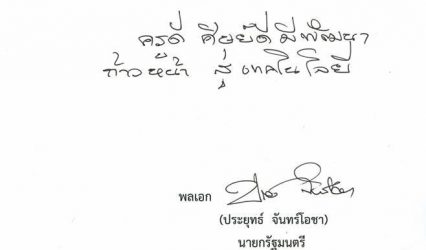 ครูดี ศิษย์ดี มีพัฒนา
ก้าวหน้า สู่ เทคโนโลยี
พลเอก
(ประยุทธ์ จันทร์โอชา)
นายกรัฐมนตรี